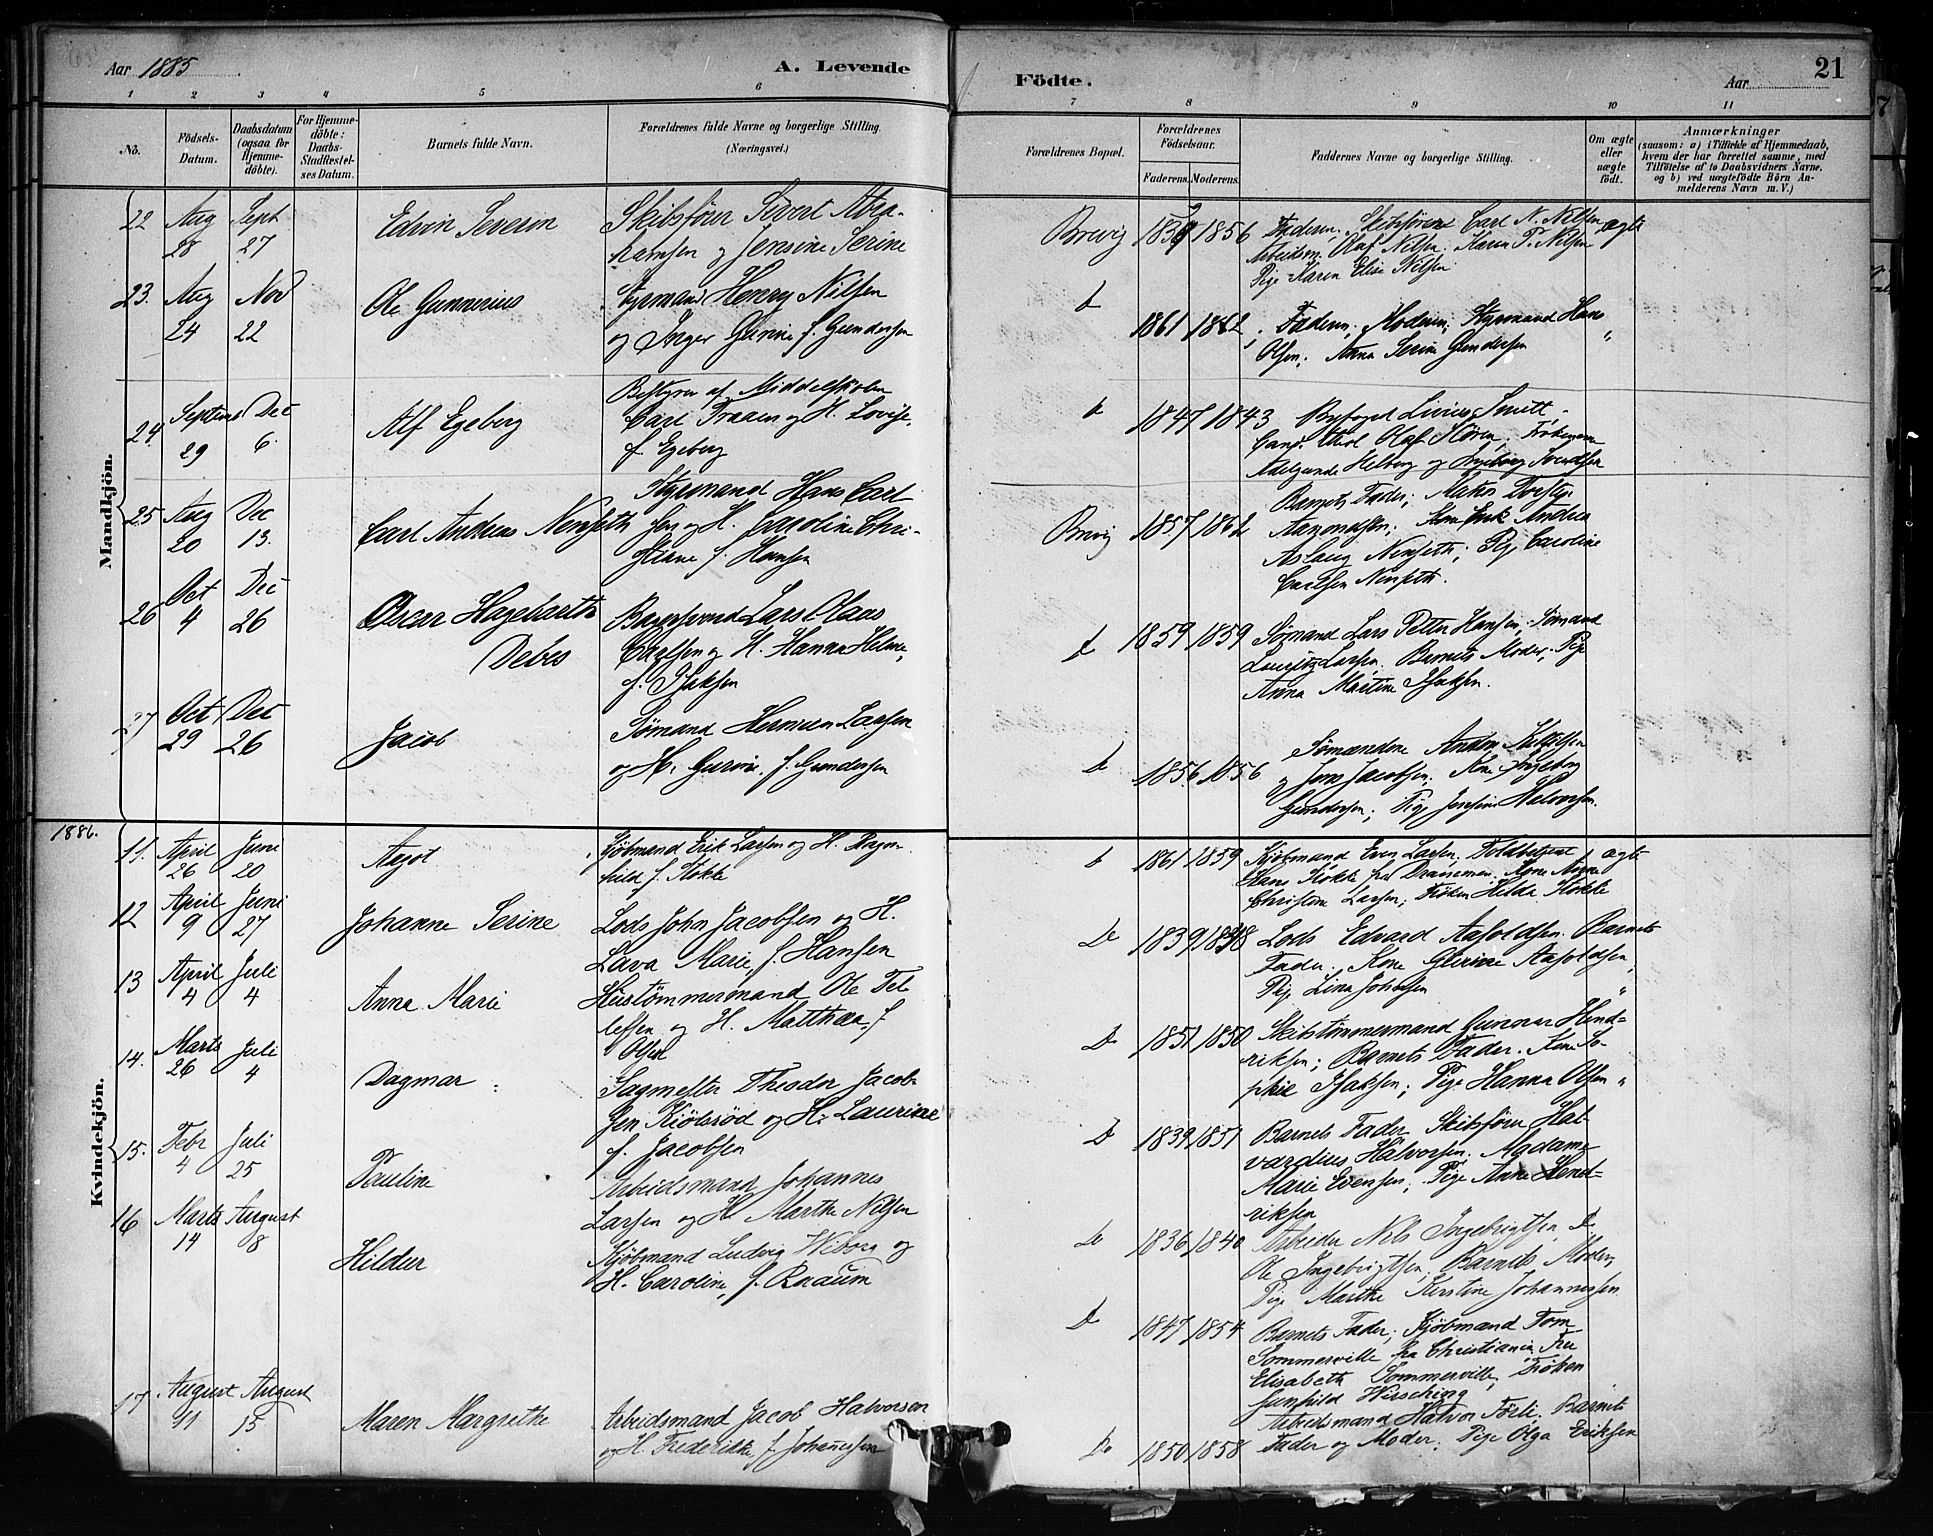 Aar 1885
A. Levende
Födte.
Aar
21
1 2 3 4 5 6 7 8 9 10 11
No.
Födsels-
Datum.
Daabsdatum
(ogsaa for
Hjemme-
döbte).
For Hjemme-
döbte:
Daabs-
Stadfæstel-
ses Datum.
Barnets fulde Navn.
Forældrenes fulde Navne og borgerlige Stilling.
(Næringsvei.)
Forældrenes Bopæl.
Forældrenes
Födselsaar.
Faderens. Moderens.
Faddernes Navne og borgerlige Stilling.
Om ægte
eller
uægte
födt.
Anmærkninger
(saasom: a) i Tilfælde af Hjemmedaab,
hvem der har forrettet samme, med
Tilföielse af to Daabsvidners Navne.
og b) ved uægtefödte Börn An-
melderens Navn m. V.)
Mandkjön.
22 Aug 28 Sept 27
Edvin Severin
Skibsfører Sivert Abra-
hamsen og Jensine Serine
Brevig 1856
Faderen, Skibsfører Carl N. Nilsen ægte
Arbeidsm. Olaf Nilsen. Karen P. Nilsen
Pige Karen Elise Nilsen
23. Aug 24 Nov 22
Ole Gunnerius
Styrmand Henry Nilsen
og Inger Gurine f. Gundersen
D 1861 1862
Faderen, Moderen, Styrmand Hans "
Olsen, Anna Serine Gundersen
24. Septemb 29 Dec 6.
Alf Egeberg
Bestyrer af Middelskolen
Carl Fraaen og H. Lovise,
f. Egeberg
D 1847 1843
Byfoged Smitt
Cand. theol Olaf Frøknerne
Adelgunde Helberg og Ingeborg Svendsen
25 Aug 20 Dec 13.
Carl Andreas Nenseth
Styrmand Hans Carl
og H. Caroline Chri-
stiane f. Hansen
Brevig 1857 1862
Barnets Fader; Matros
Aanondsen; Andrea
Aslaug Nenseth; Pige Caroline
Carlsen Nenseth.
26 Oct 4 Dec 26
Oscar Hagebarth
Debes
Lars Claus
Carlsen og H. Hanna Helene,
f. Isaksen
D 1859 1859
Sømand Lars Petter Hansen, Sømand
Lauritz Larsen. Barnets Moder, Pige
Anna Martine Isaksen.
27 Oct 29 Dec 26
Jacob
Sømand Herman Larsen
og H. Gurine, f. Gundersen
D 1856. 1856
Sømændene Anders
og Jens Jacobsen. Kone Ingeborg
Gundersen; Pige Josefine Halvorsen.
1886.
Kvindekjön.
11. April 26 June 20
Aagot
Kjøbmand Erik Larsen og H. Ragn-
hild f. Stokke
D 1861 1859
Kjøbmand Even Larsen, Toldbetjent ægte
Hans Stokke fra Drammen. Kone Anne
Christine Larsen, Frøken Hilda Stokke
12 April 9 Juni 27
Johanne Serine
Lods John Jacobsen og H.
Lava Marie, f. Hansen
Do 1839
Lods Edvard Aasoldsen. Barnets
Fader. Kone Gurine Aasoldsen,
Pige Lina Johnsen "
13 April 4 Juli 4
Anna Marie
Huustømmermand Ole Tel-
lefsen og H. Matthea, f
Olsen
Do 1851 1850
Skibstømmermand Gunnar Hend-
riksen; Barnets Fader. Kone So-
phie Isaksen; Pige Hanna Olsen "
14. Marts 26 Juli 4
Dagmar
Sagmester Theodor Jacob-
sen Kiølsrød og H. Laurine
f. Jacobsen
D 1839 1851
Barnets Fader Skibsfører Hal-
vardius Halvorsen. Madame
Marie Evensen; Pige Anne Hend-
riksen
15. Febr 4 Juli 25
Pauline
Arbeidsmand Johannes
Larsen og H. Marthe Nilsen
Do 1836 1840
Arbeider Nils Ingebrigtsen, Do
Ole Ingebrigtsen, Barnets Moder,
Pige Marthe Kerstine Johannessen
16 Marts 14 August 8
Hildur
Kjøbmand Ludvig Wiborg og
H. Caroline, f. Knaum
D 1847 1854
Barnets Fader; Kjøbmand Tom
Sommerville fra Christiania, Fru
Elisabeth Sommerville, Frøken
Gunhild Wesching
17 August 11 August 15
Maren Margrethe
Arbeidsmand Jacob Halvorsen
og H. Frederikke f. Johannessen
Do 1850 1858
Arbeidsmand Halvor Førli, Barnets
Fader og Moder; Pige Olga Eriksen